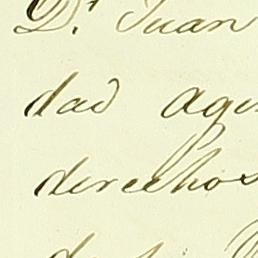 Dr. Juan
dad agi
derechos